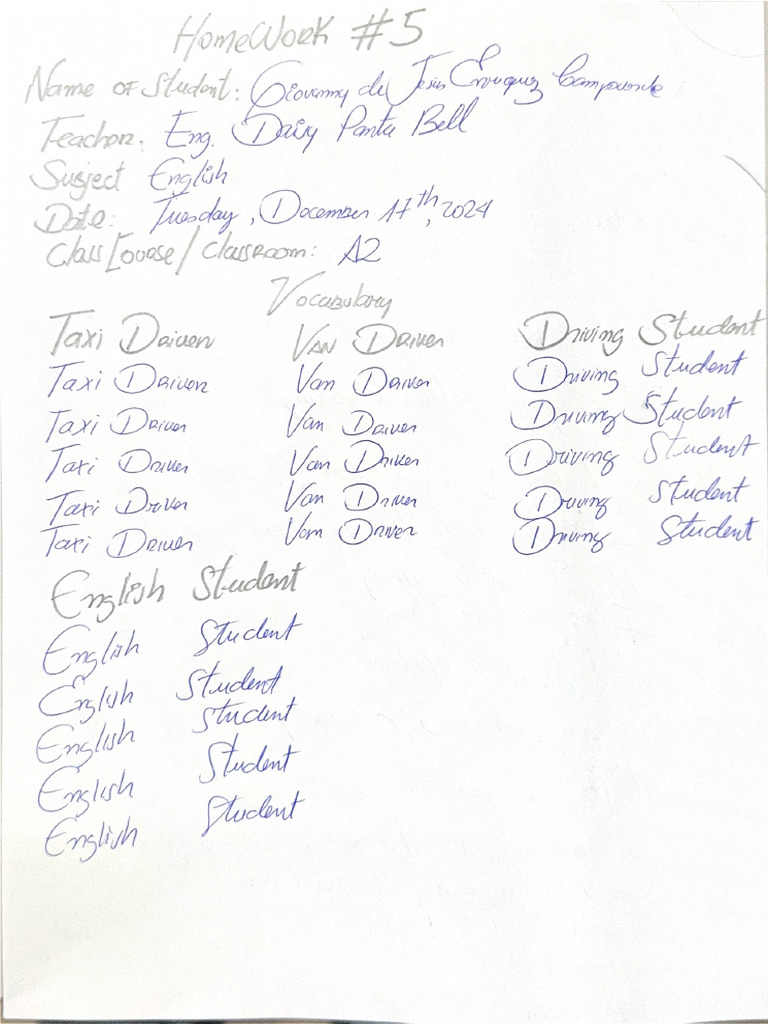 HomeWork #5
Name of Student: Giovanny de Jesus Enriquez
Teacher: Eng. Daisy Panta Bell
Subject English
Date: Tuesday, December 17th, 2024
Class/Course/Classroom: A2
Vocabulary
Taxi Driver Van Driver Driving Student
Taxi Driver Van Driver Driving Student
Taxi Driver Van Driver Driving Student
Taxi Driver Van Driver Driving Student
Taxi Driver Van Driver Driving Student
Taxi Driver Van Driver Driving Student
English Student
English Student
English Student
English Student
English Student
English Student